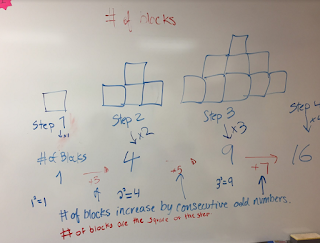 # of blocks
Step 1 Step 2 Step 3 Step
x2 x3
# of Blocks 4 9 16
1 +3 +5 +7
1²=1 2²=4 3²=9
# of blocks increase by consecutive odd numbers.
# of blocks are the square of the step